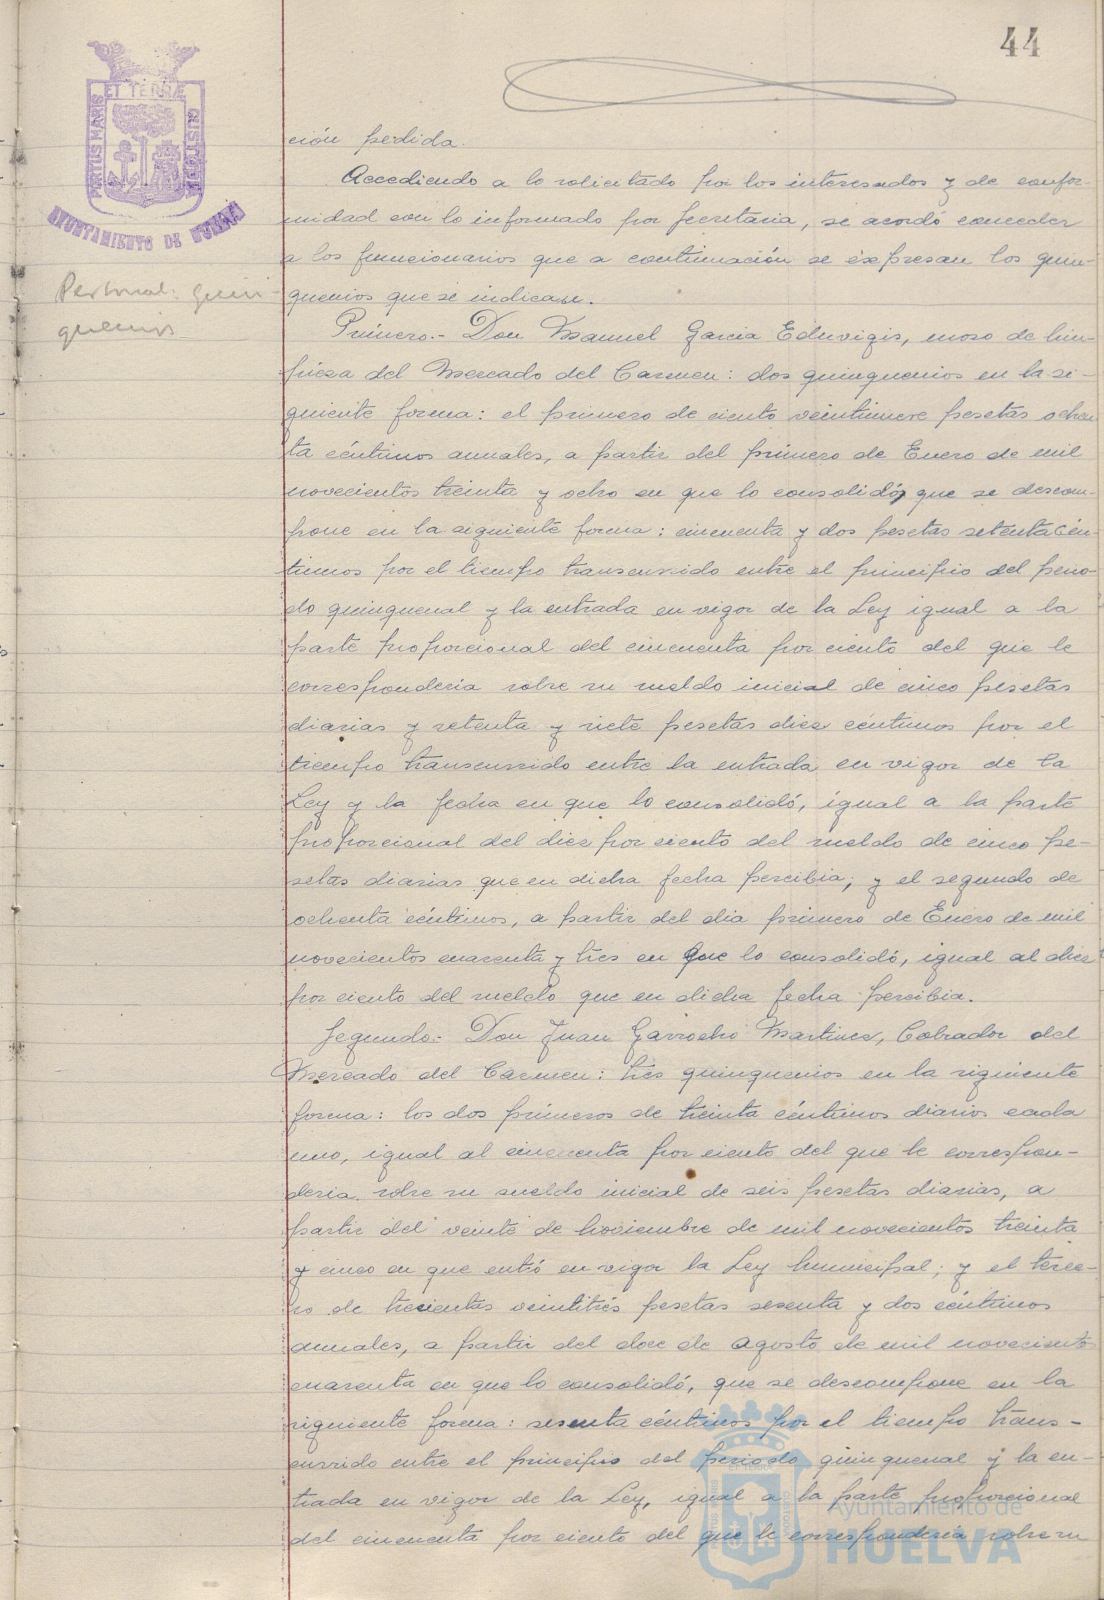 44
PORTUS MARIS ET TERRÆ CUSTODIA
AYUNTAMIENTO DE HUELVA
Personal: quin-
quenios
ción pedida.
Accediendo a lo solicitado por los interesados y de confor-
midad con lo informado por Secretaria, se acordó conceder
a los funcionarios que a continuación se expresan los quin-
quenios que se indican.
Primero.- Don Manuel Garcia Eduvigis, mozo de lim-
pieza del Mercado del Carmen: dos quinquenios en la si-
guiente forma: el primero de ciento veintinueve pesetas ochen-
ta céntimos anuales, a partir del primero de Enero de mil
novecientos treinta y ocho en que lo consolidó, que se descom-
pone en la siguiente forma: cincuenta y dos pesetas setenta cén-
timos por el tiempo transcurrido entre el principio del perio-
do quinquenal y la entrada en vigor de la Ley igual a la
parte proporcional del cincuenta por ciento del que le
corresponderia sobre su sueldo inicial de cinco pesetas
diarias y setenta y siete pesetas diez céntimos por el
tiempo transcurrido entre la entrada en vigor de la
Ley y la fecha en que lo consolidó, igual a la parte
proporcional del diez por ciento del sueldo de cinco pe-
setas diarias que en dicha fecha percibia; y el segundo de
ochenta céntimos, a partir del dia primero de Enero de mil
novecientos cuarenta y tres en que lo consolidó, igual al diez
por ciento del sueldo que en dicha fecha percibia.
Segundo.- Don Juan Garrocho Martinez, Cobrador del
Mercado del Carmen: tres quinquenios en la siguiente
forma: los dos primeros de treinta céntimos diarios cada
uno, igual al cincuenta por ciento del que le correspon-
deria sobre su sueldo inicial de seis pesetas diarias, a
partir del veinte de noviembre de mil novecientos treinta
y cinco en que entró en vigor la Ley Municipal; y el terce-
ro de trecientas veintitrés pesetas sesenta y dos céntimos
anuales, a partir del doce de agosto de mil novecientos
cuarenta en que lo consolidó, que se descompone en la
siguiente forma: sesenta céntimos por el tiempo trans-
currido entre el principio del periodo quinquenal y la en-
trada en vigor de la Ley, igual a la parte proporcional
del cincuenta por ciento del que le corresponderia sobre su
Ayuntamiento de
HUELVA